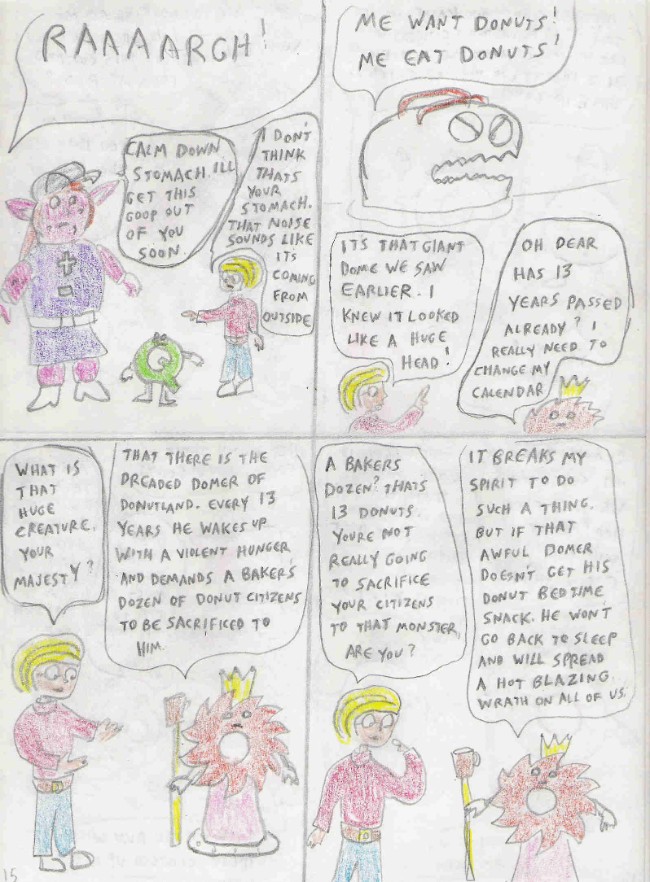 RAAAARGH!
CALM DOWN
STOMACH. I'LL
GET THIS
GOOP OUT
OF YOU
SOON.
I DON'T
THINK
THATS
YOUR
STOMACH.
THAT NOISE
SOUNDS LIKE
ITS
COMING
FROM
OUTSIDE
Q
ME WANT DONUTS!
ME EAT DONUTS!
ITS THAT GIANT
DOME WE SAW
EARLIER. I
KNEW IT LOOKED
LIKE A HUGE
HEAD!
OH DEAR
HAS 13
YEARS PASSED
ALREADY? I
REALLY NEED TO
CHANGE MY
CALENDAR
WHAT IS
THAT
HUGE
CREATURE,
YOUR
MAJESTY?
THAT THERE IS THE
DREADED DOMER OF
DONUTLAND. EVERY 13
YEARS HE WAKES UP
WITH A VIOLENT HUNGER
AND DEMANDS A BAKER'S
DOZEN OF DONUT CITIZENS
TO BE SACRIFICED TO
HIM.
A BAKERS
DOZEN? THAT'S
13 DONUTS.
YOURE NOT
REALLY GOING
TO SACRIFICE
YOUR CITIZENS
TO THAT MONSTER,
ARE YOU?
IT BREAKS MY
SPIRIT TO DO
SUCH A THING.
BUT IF THAT
AWFUL DOMER
DOESN'T GET HIS
DONUT BEDTIME
SNACK. HE WON'T
GO BACK TO SLEEP
AND WILL SPREAD
A HOT BLAZING
WRATH ON ALL OF US.
15